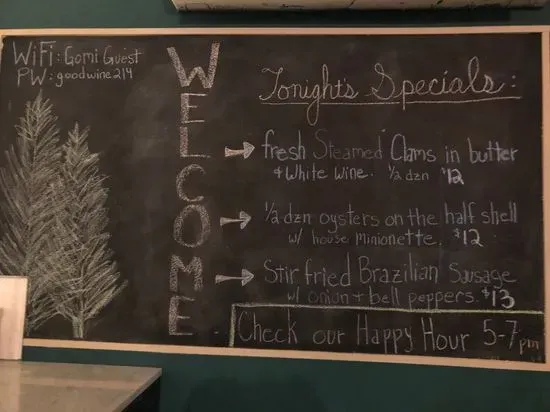 WiFi: Gomi Guest
PW: goodwine214
WELCOME
Tonight's Specials:
fresh Steamed Clams in butter
& White Wine. 1/2 dzn $12
1/2 dzn oysters on the half shell
w/ house minionette. $12
Stir fried Brazilian Sausage
w/ onion + bell peppers. $13
Check our Happy Hour 5-7pm